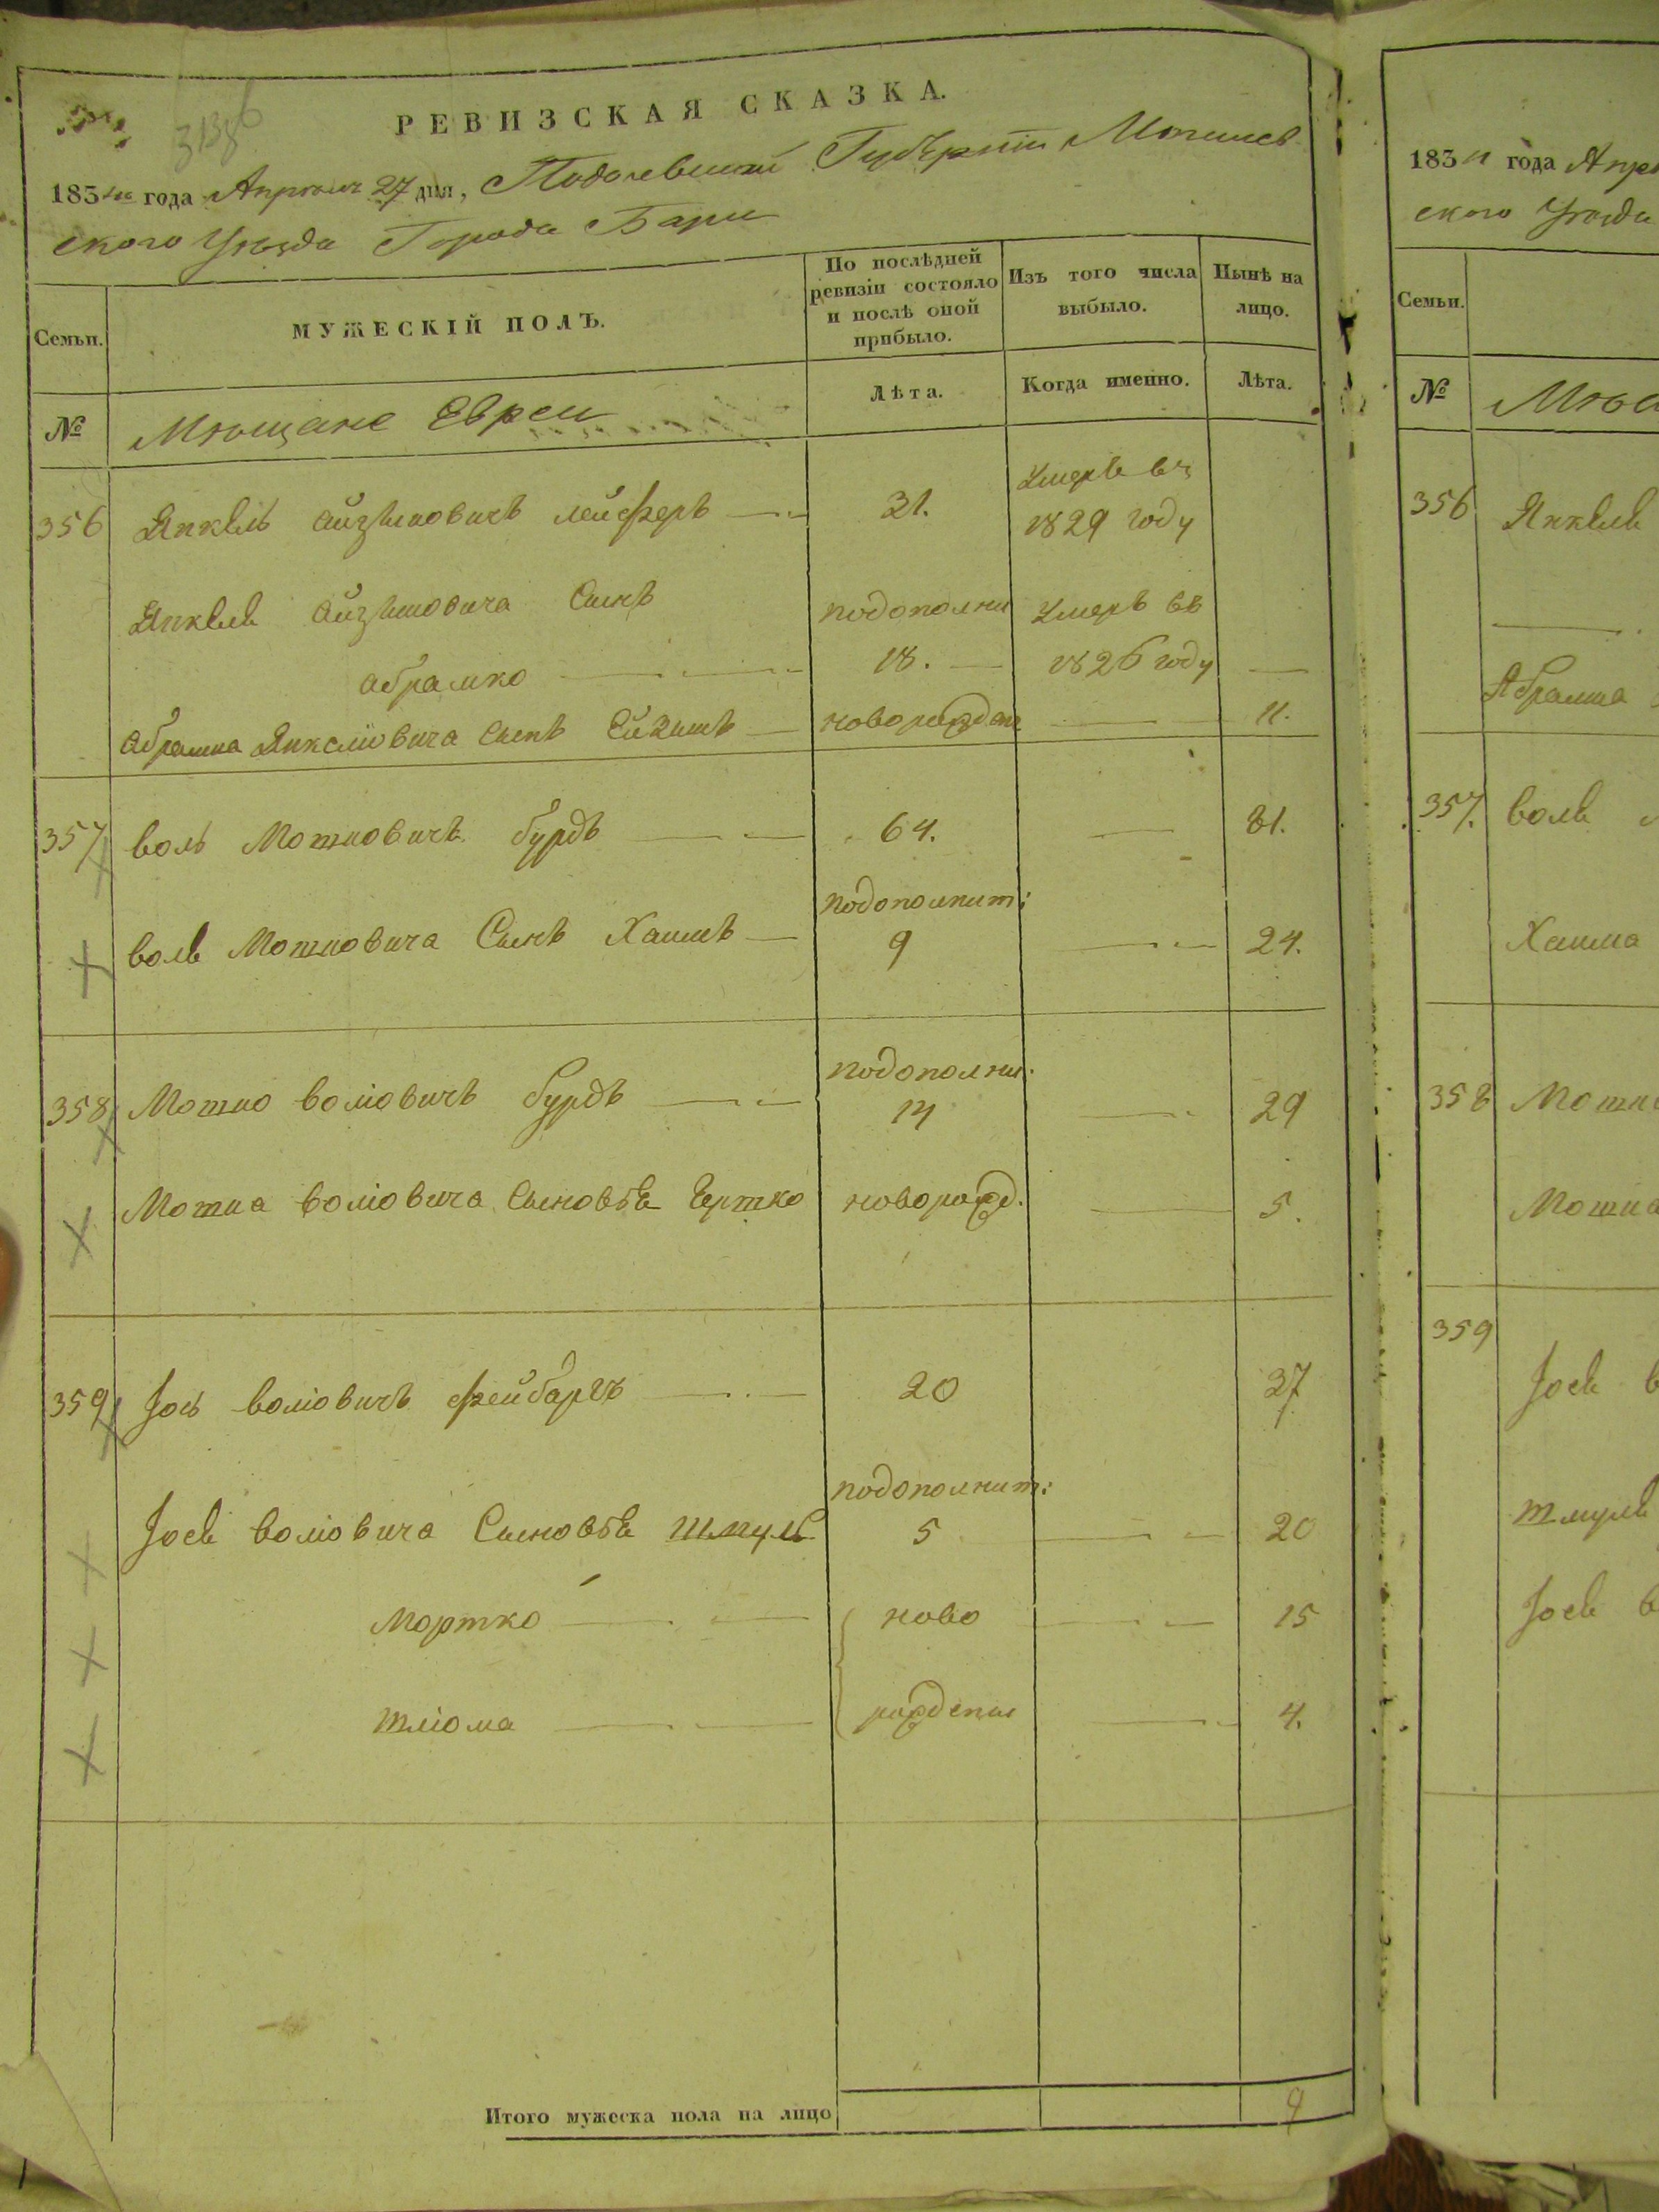 РЕВИЗСКАЯ СКАЗКА.
1834 года Апреля 27 дня, Подольской Губернии Могилев
ского Уезда Города Бара
Семьи.
МУЖЕСКІЙ ПОЛЪ.
По послѣдней ревизіи состояло и послѣ оной прибыло.
Изъ того числа выбыло.
Нынѣ на лицо.
№
Мѣщане Евреи
Лѣта.
Когда именно.
Лѣта.
356 Янкель Айзиковичъ Лейферъ 31. Умеръ въ
1829 году
Янкеля Айзиковича Сынъ подополни Умеръ въ
Абрамко 18. 1826 году
Абрамка Янкелiовича Сынъ новорожден 11.
357 Воль Мошковичъ Бурдъ 64. 81.
подополнит:
Воля Мошковича Сынъ Хаимъ 9 24.
подополни:
358 Мошко Волiовичъ Бурдъ 14 29
Мошка Волiовича Сыновья новорожд. 5.
359 Iось Волiовичъ Фейбаргъ 20 37
подополнит:
Iося Волiовича Сыновья Шмуль 5 20
Мортко ново 15
Шлiома рождены 4.
Итого мужеска пола на лицо 9
183 года
ского Уезда
Семьи.
№
356 Янкеля
Абрамка
357. Воля
Хаима
358
359
Iося
Шмуля
Iося